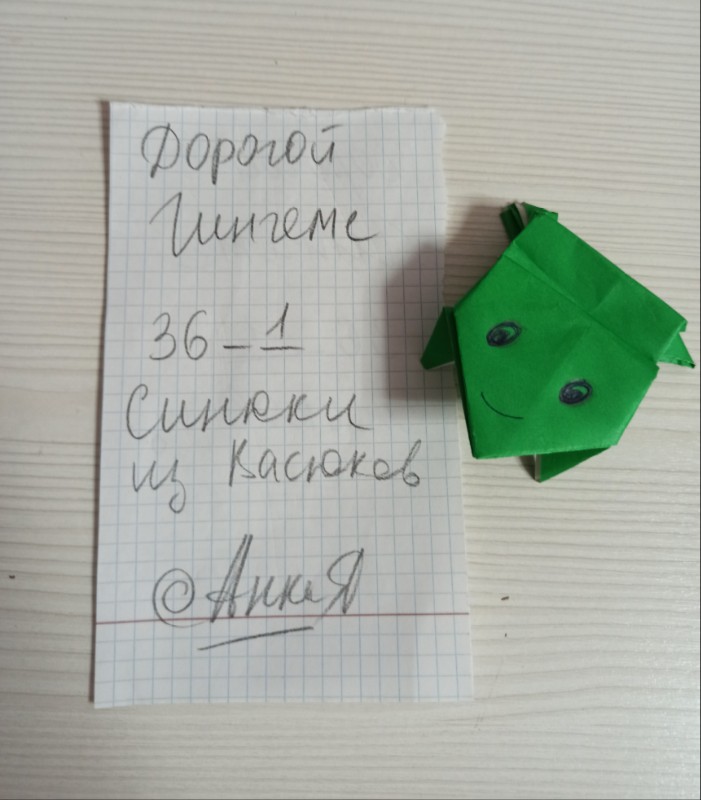 Дорогой
Гингеме
36-1
Синюки
из Васюков
©АнкаЯ